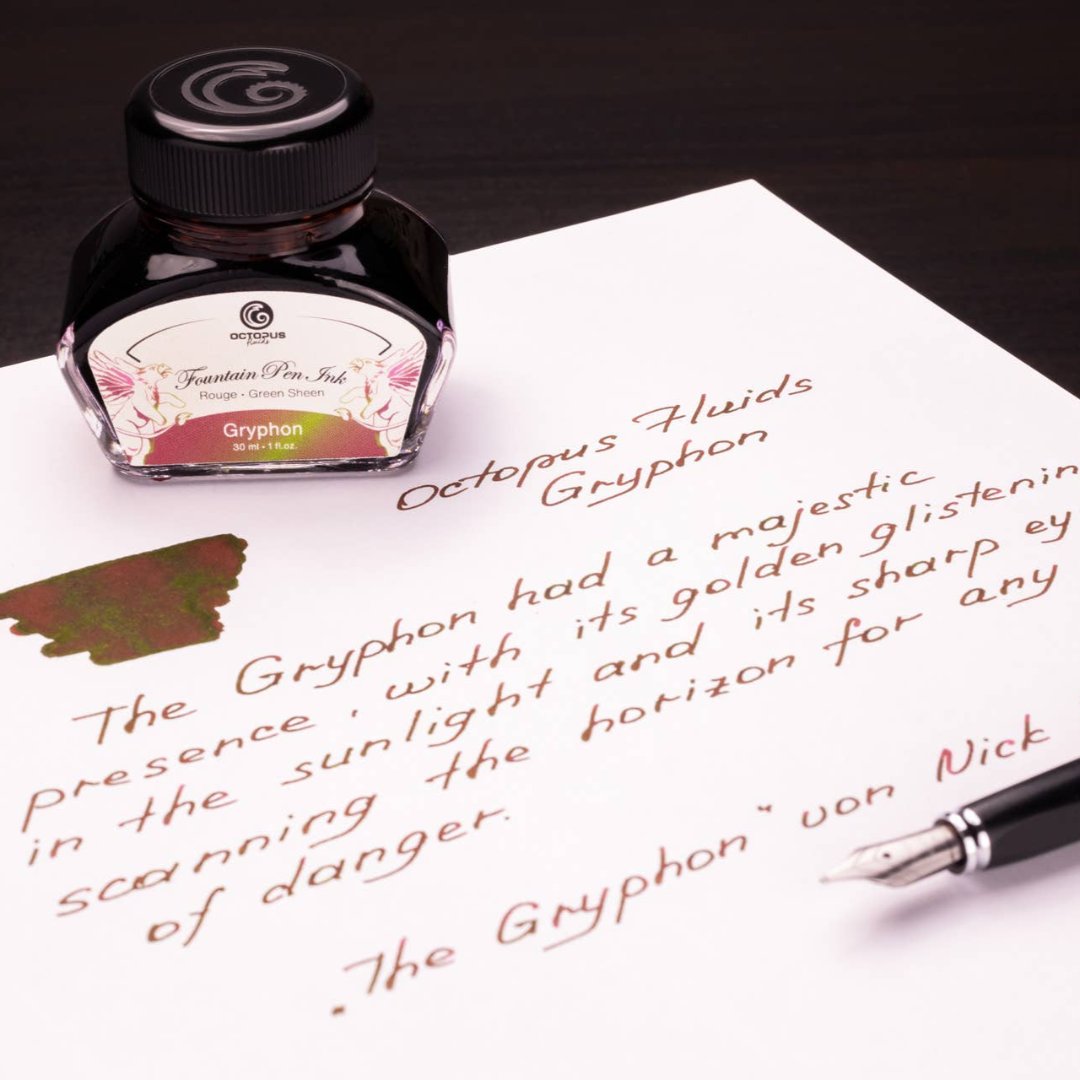 OCTOPUS
fluids
Fountain Pen Ink
Rouge • Green Sheen
Gryphon
30 ml • 1 fl.oz.
Octopus Fluids
Gryphon
The Gryphon had a majestic
presence, with its golden glistenin
in the sunlight and its sharp ey
scanning the horizon for any
of danger.
„The Gryphon“ von Nick